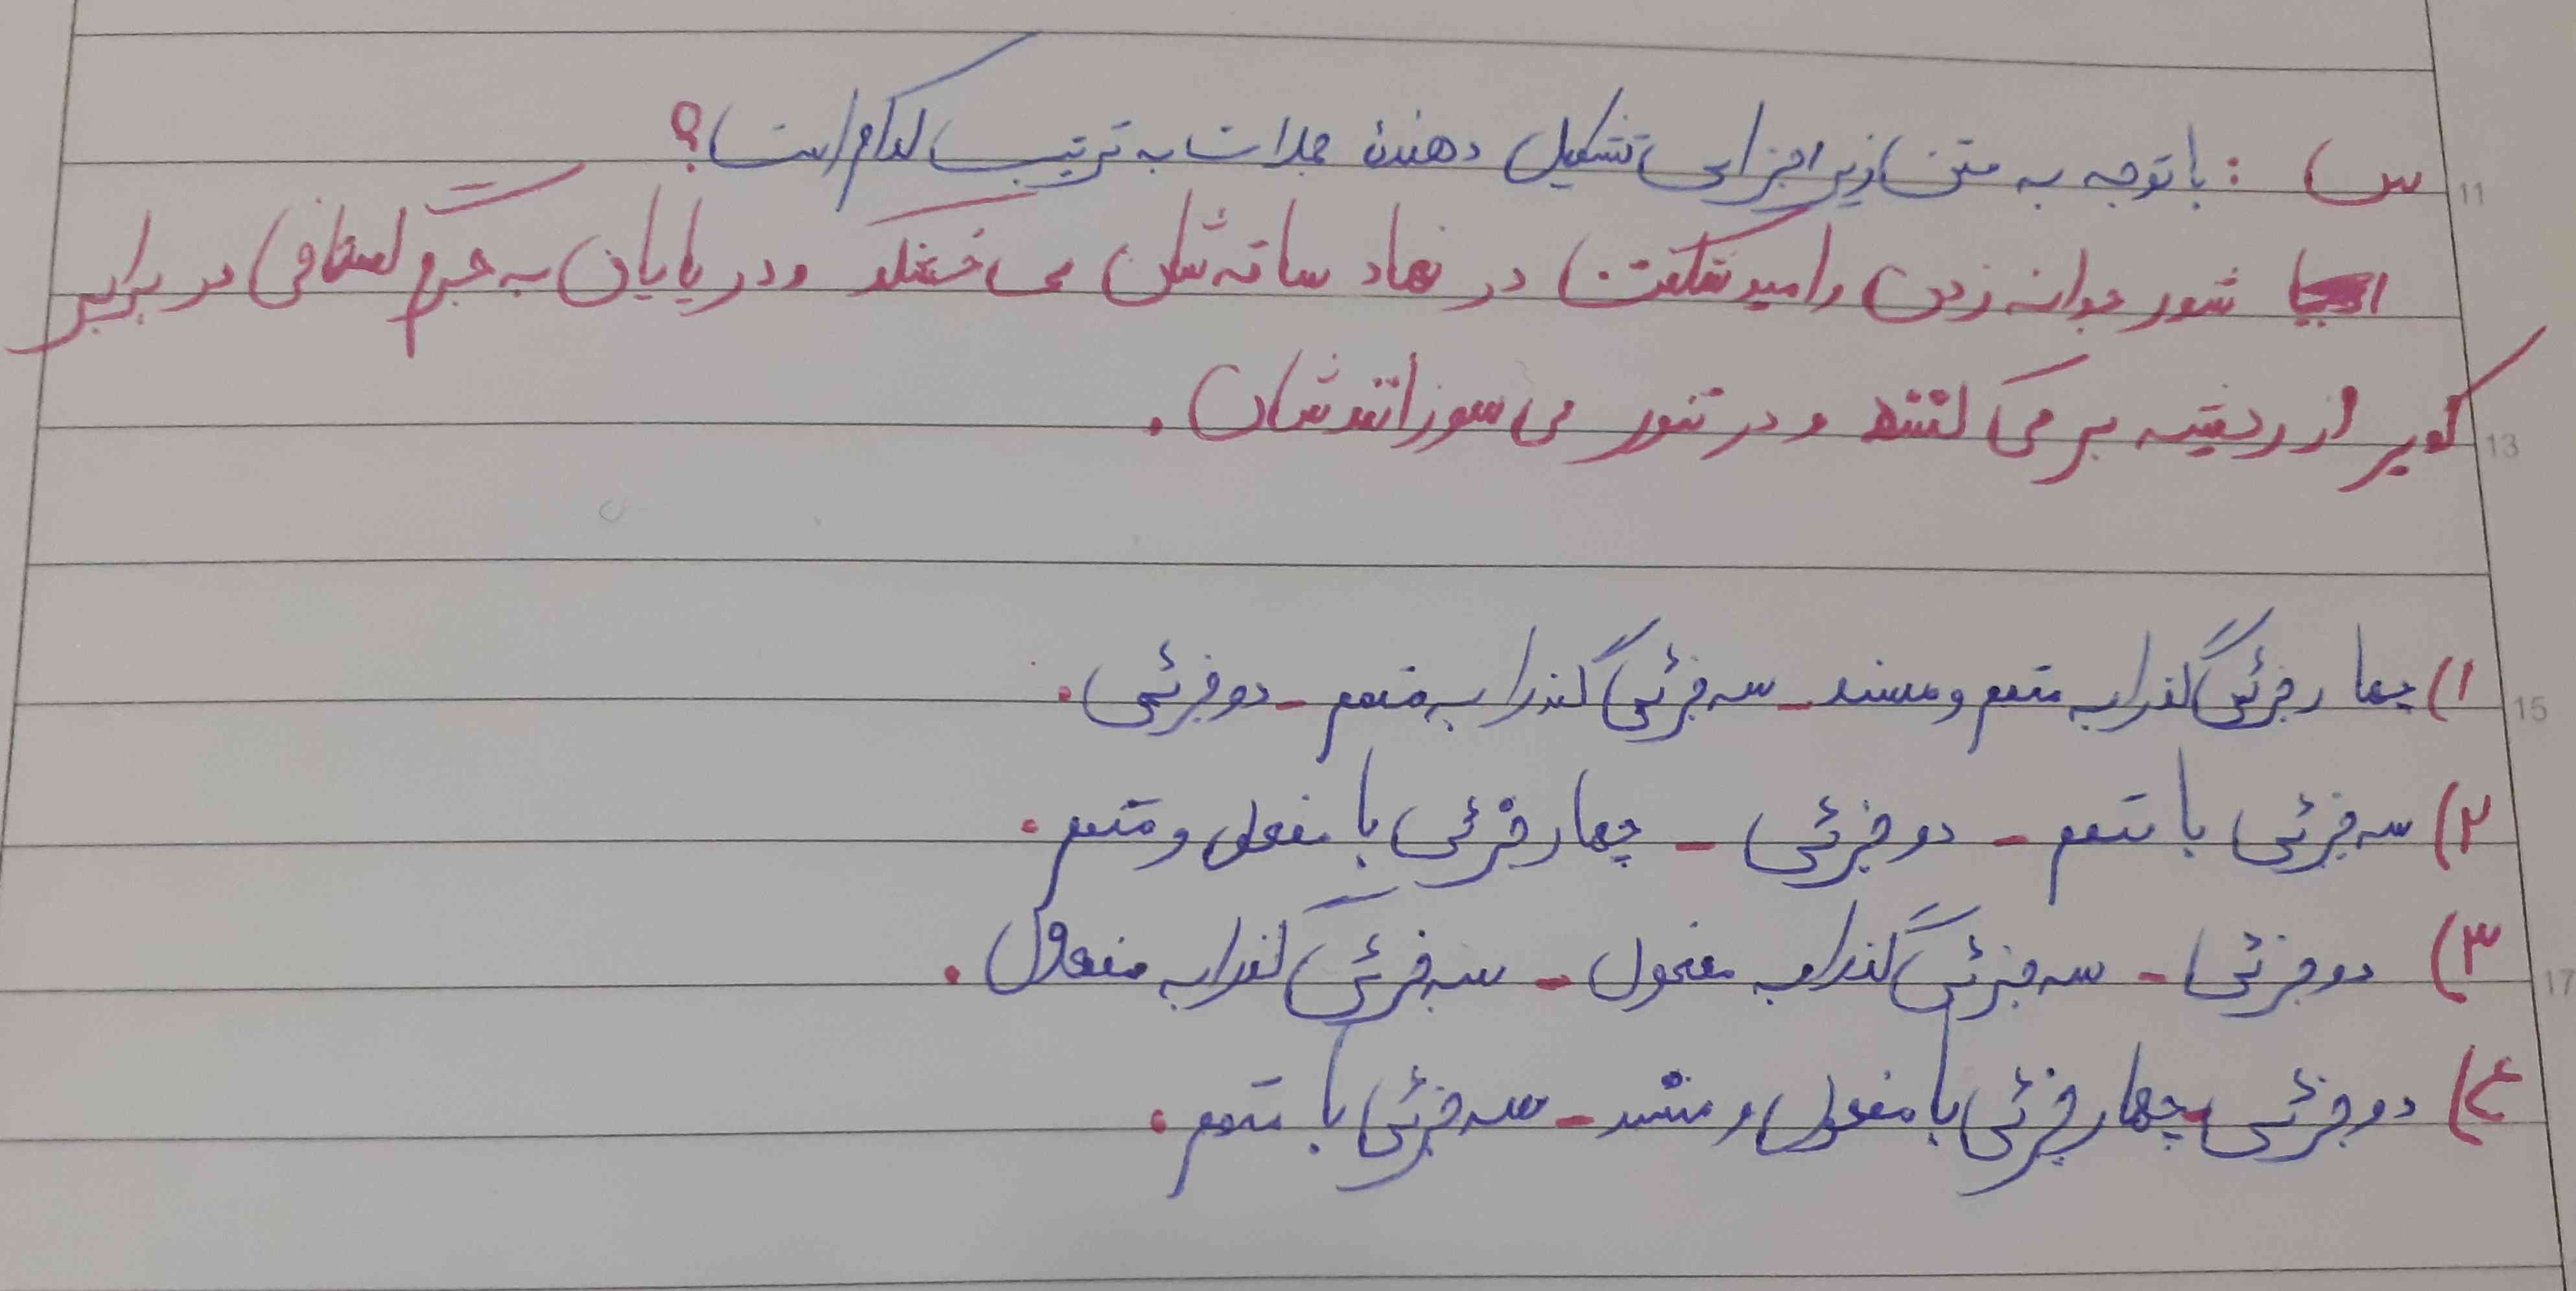 س : با توجه به متن زیر اجزای تشکیل دهندهٔ جملات به ترتیب کدام است؟
شور جوانه زدن و امید شکفتن در نهاد ساقه شان می خشکد و در پایان به جرم گستاخی در برابر
کویر از ریشه بر می کنند و در تنور می سوزانندشان .
۱) چهار جزئی گذرا به متمم و مسند - سه جزئی گذرا به متمم - دو جزئی .
۲) سه جزئی با متمم - دو جزئی - چهار جزئی با مفعول و متمم .
۳) دو جزئی - سه جزئی گذرا به مفعول - سه جزئی گذرا به مفعول .
۴) دو جزئی - چهار جزئی با مفعول و مسند - سه جزئی با متمم .
11
13
15
17